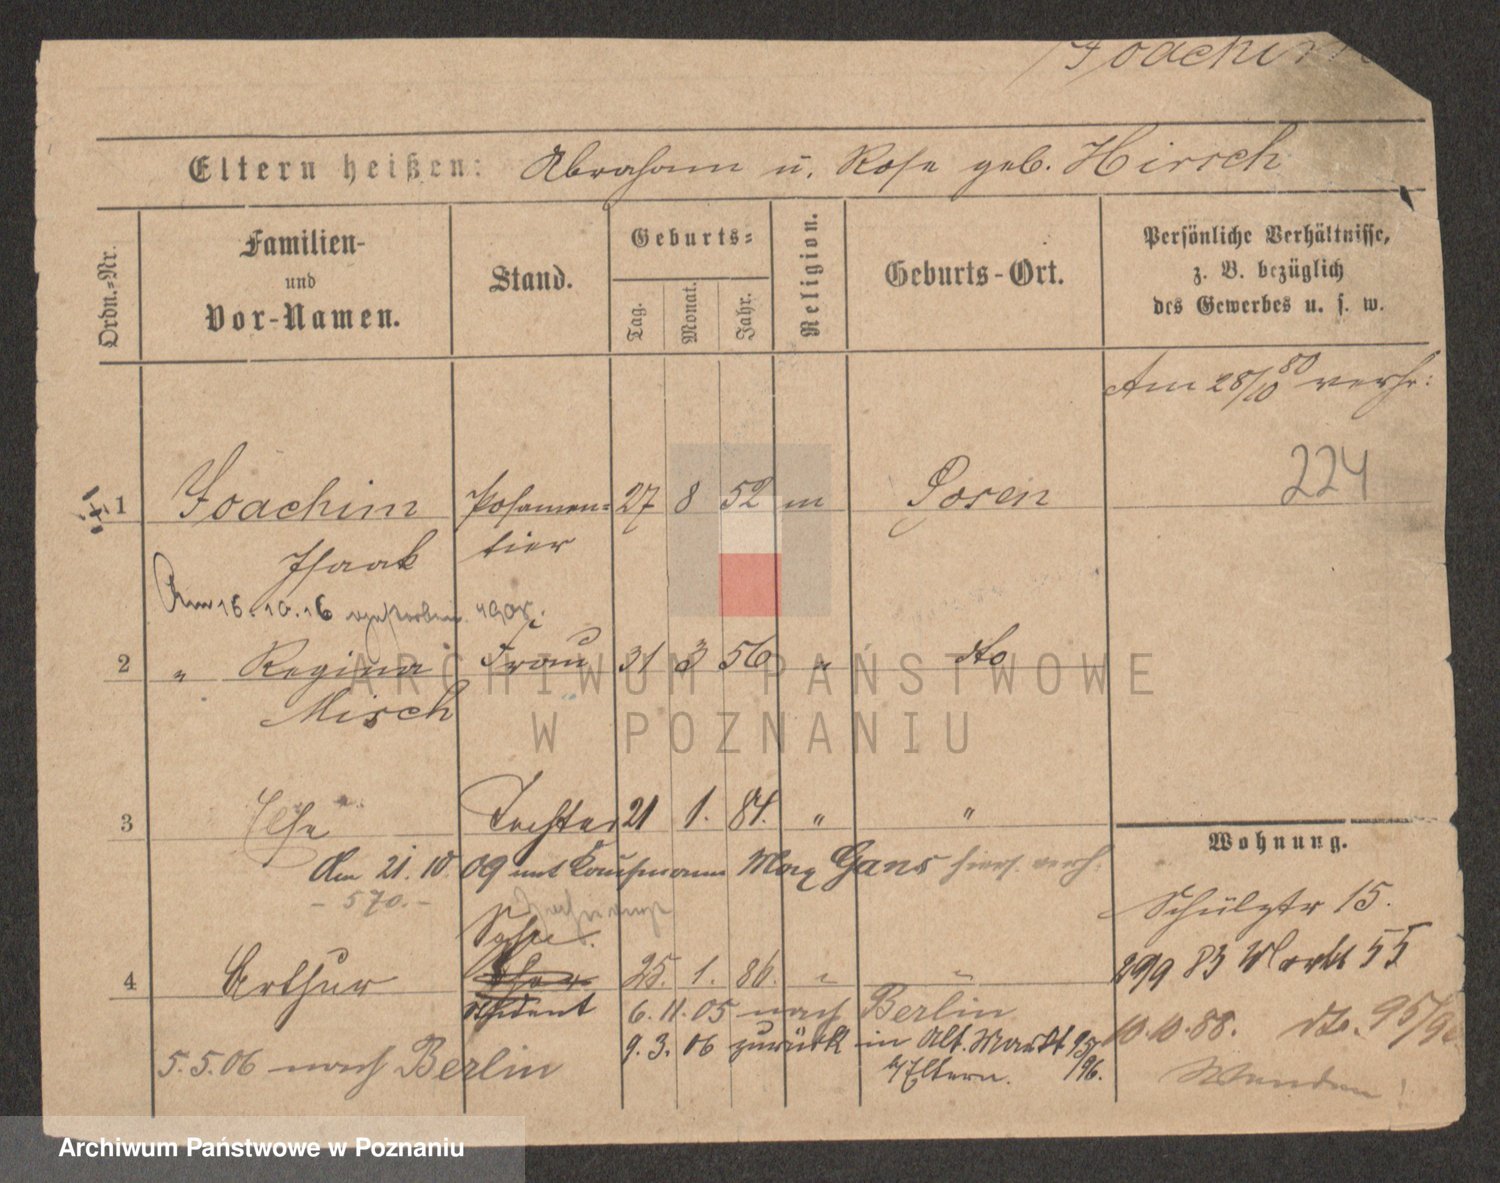 Joachim
Eltern heißen: Abraham u. Rose geb. Hirsch
Ordn.-Nr.
Familien-
und
Vor-Namen.
Stand.
Geburts-
Tag.
Monat.
Jahr.
Religion.
Geburts-Ort.
Persönliche Verhältnisse,
z. B. bezüglich
des Gewerbes u. s. w.
Am 28/10 80 verh:
224
1 Joachim Posamen- 27 8 52 m Posen
Isaak tier
Am 16.10.16 gestorben
2 " Regina Frau 31 3 56 " dto
Misch
3 Ilse Tochter 21 1. 84. " "
Am 21. 10 09 mit Kaufmann Max Gans hiers. verh.
- 570. -
Wohnung.
Schulstr 15.
Sohn.
4 Arthur 25. 1. 86. " "
299 83 Markt 55
Student 6. 11. 05 nach Berlin
9. 3. 06 zurück in Alt. Markt 95/96.
b/Eltern.
10.10.88. dto. 95/96
5.5.06 nach Berlin
Wenden!
ARCHIWUM PAŃSTWOWE
W POZNANIU
Archiwum Państwowe w Poznaniu